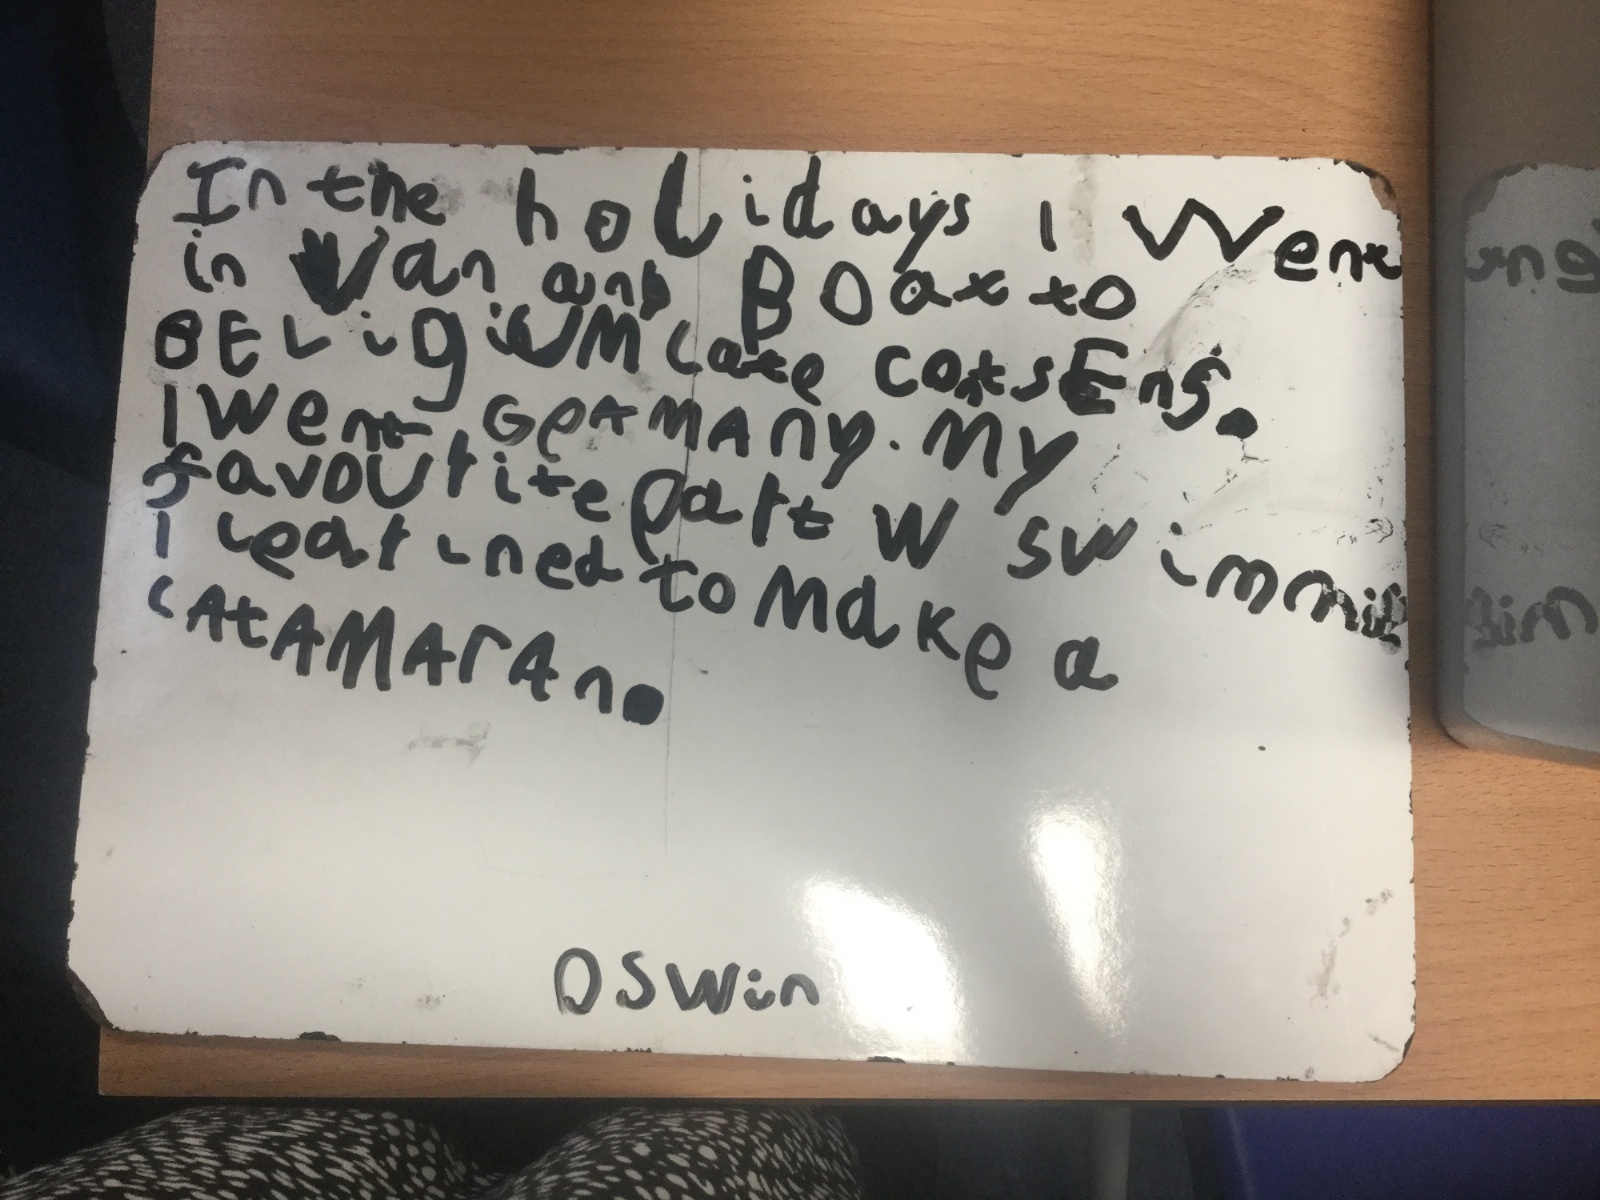 In the holidays I Went
in Van and BOat to
BELigiUM Late CatsEng.
I Went GerMANy. My
favourite part W swimmi
I learined to Make a
CAtAMArAn.
OSWin